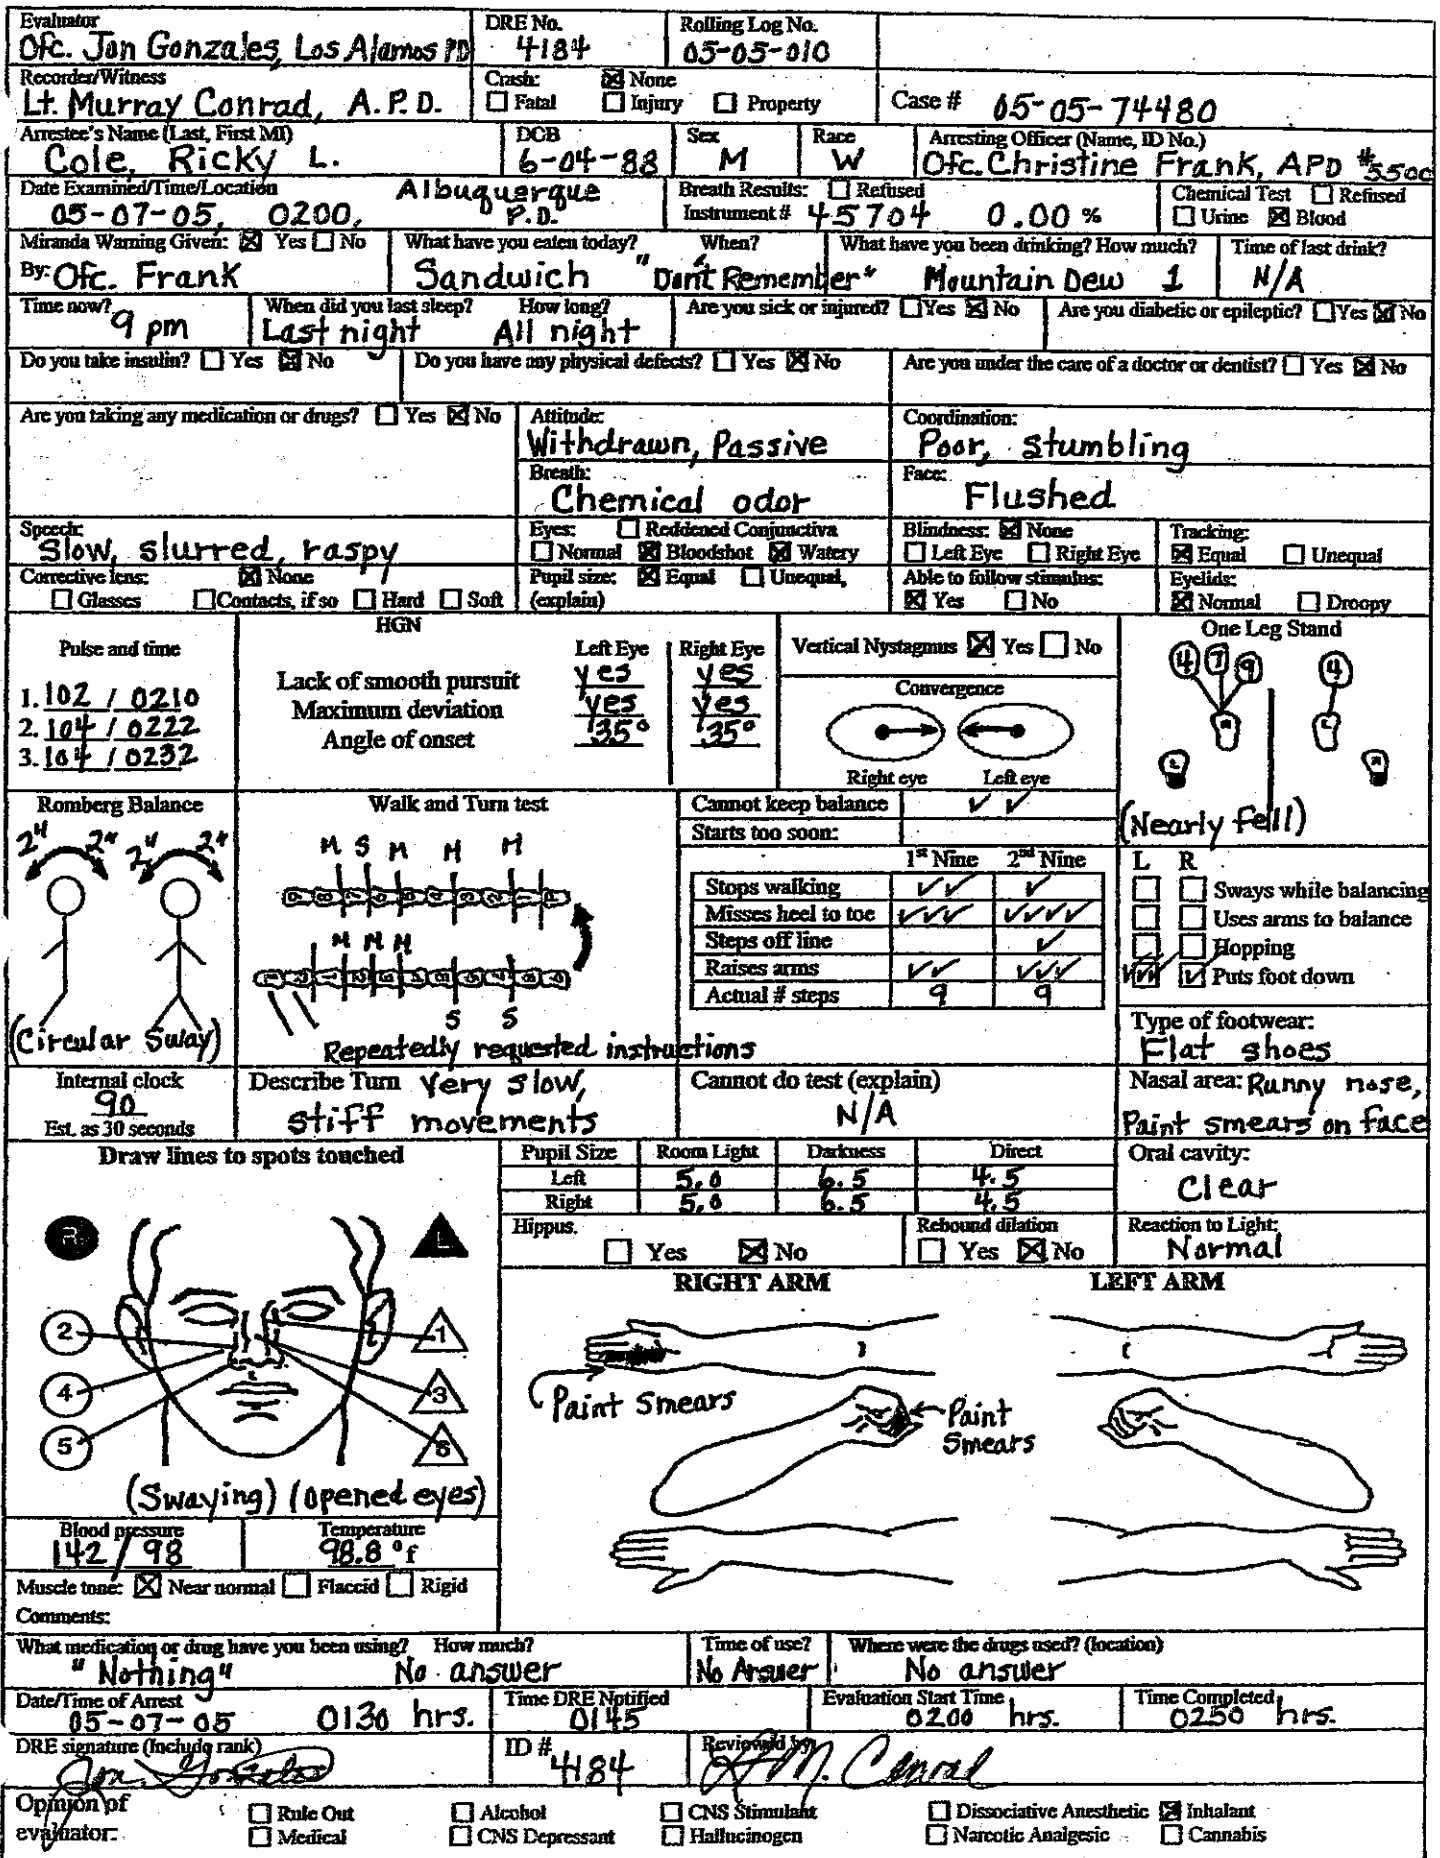 Evaluator
Ofc. Jon Gonzales, Los Alamos PD
DRE No.
4184
Rolling Log No.
05-05-010
Recorder/Witness
Lt. Murray Conrad, A.P.D.
Crash: ☒ None
☐ Fatal ☐ Injury ☐ Property
Case # 05-05-74480
Arrestee's Name (Last, First MI)
Cole, Ricky L.
DOB
6-04-88
Sex
M
Race
W
Arresting Officer (Name, ID No.)
Ofc. Christine Frank, APD #5500
Date Examined/Time/Location
05-07-05, 0200, Albuquerque P.D.
Breath Results: ☐ Refused
Instrument # 45704 0.00 %
Chemical Test ☐ Refused
☐ Urine ☒ Blood
Miranda Warning Given: ☒ Yes ☐ No
By: Ofc. Frank
What have you eaten today? When?
Sandwich "Don't Remember"
What have you been drinking? How much?
Mountain Dew 1
Time of last drink?
N/A
Time now?
9 pm
When did you last sleep? How long?
Last night All night
Are you sick or injured? ☐ Yes ☒ No
Are you diabetic or epileptic? ☐ Yes ☒ No
Do you take insulin? ☐ Yes ☒ No
Do you have any physical defects? ☐ Yes ☒ No
Are you under the care of a doctor or dentist? ☐ Yes ☒ No
Are you taking any medication or drugs? ☐ Yes ☒ No
Attitude:
Withdrawn, Passive
Coordination:
Poor, stumbling
Breath:
Chemical odor
Face:
Flushed
Speech:
Slow, slurred, raspy
Eyes: ☐ Reddened Conjunctiva
☐ Normal ☒ Bloodshot ☒ Watery
Blindness: ☒ None
☐ Left Eye ☐ Right Eye
Tracking:
☒ Equal ☐ Unequal
Corrective lens: ☒ None
☐ Glasses ☐ Contacts, if so ☐ Hard ☐ Soft
Pupil size: ☒ Equal ☐ Unequal,
(explain)
Able to follow stimulus:
☒ Yes ☐ No
Eyelids:
☒ Normal ☐ Droopy
Pulse and time
1. 102 / 0210
2. 104 / 0222
3. 104 / 0232
HGN
Left Eye Right Eye
Lack of smooth pursuit yes yes
Maximum deviation yes yes
Angle of onset 35° 35°
Vertical Nystagmus ☒ Yes ☐ No
Convergence
Right eye Left eye
One Leg Stand
4 7 9 4
R L
L R
(Nearly fell)
Romberg Balance
2" 2" 2" 2"
(Circular Sway)
Walk and Turn test
M S M M M
M M M
S S
Repeatedly requested instructions
Cannot keep balance ✓ ✓
Starts too soon:
1st Nine 2nd Nine
Stops walking ✓✓ ✓
Misses heel to toe ✓✓✓ ✓✓✓✓
Steps off line ✓
Raises arms ✓✓ ✓✓✓
Actual # steps 9 9
L R
☐ ☐ Sways while balancing
☐ ☐ Uses arms to balance
☐ ☐ Hopping
☒ ☒ Puts foot down
Type of footwear:
Flat shoes
Internal clock
90
Est. as 30 seconds
Describe Turn Very slow,
stiff movements
Cannot do test (explain)
N/A
Nasal area: Runny nose,
Paint smears on face
Draw lines to spots touched
R L
2 1
4 3
5 6
(Swaying) (opened eyes)
Pupil Size Room Light Darkness Direct
Left 5.0 6.5 4.5
Right 5.0 6.5 4.5
Oral cavity:
Clear
Hippus.
☐ Yes ☒ No
Rebound dilation
☐ Yes ☒ No
Reaction to Light:
Normal
RIGHT ARM LEFT ARM
Paint Smears
Paint
Smears
Blood pressure
142 / 98
Temperature
98.8 °f
Muscle tone: ☒ Near normal ☐ Flaccid ☐ Rigid
Comments:
What medication or drug have you been using? How much?
"Nothing" No answer
Time of use?
No Answer
Where were the drugs used? (location)
No answer
Date/Time of Arrest
05-07-05 0130 hrs.
Time DRE Notified
0145
Evaluation Start Time
0200 hrs.
Time Completed
0250 hrs.
DRE signature (Include rank)
Jon Gonzales
ID #
4184
Reviewed by:
Lt M. Conrad
Opinion of
evaluator:
☐ Rule Out ☐ Alcohol ☐ CNS Stimulant ☐ Dissociative Anesthetic ☒ Inhalant
☐ Medical ☐ CNS Depressant ☐ Hallucinogen ☐ Narcotic Analgesic ☐ Cannabis